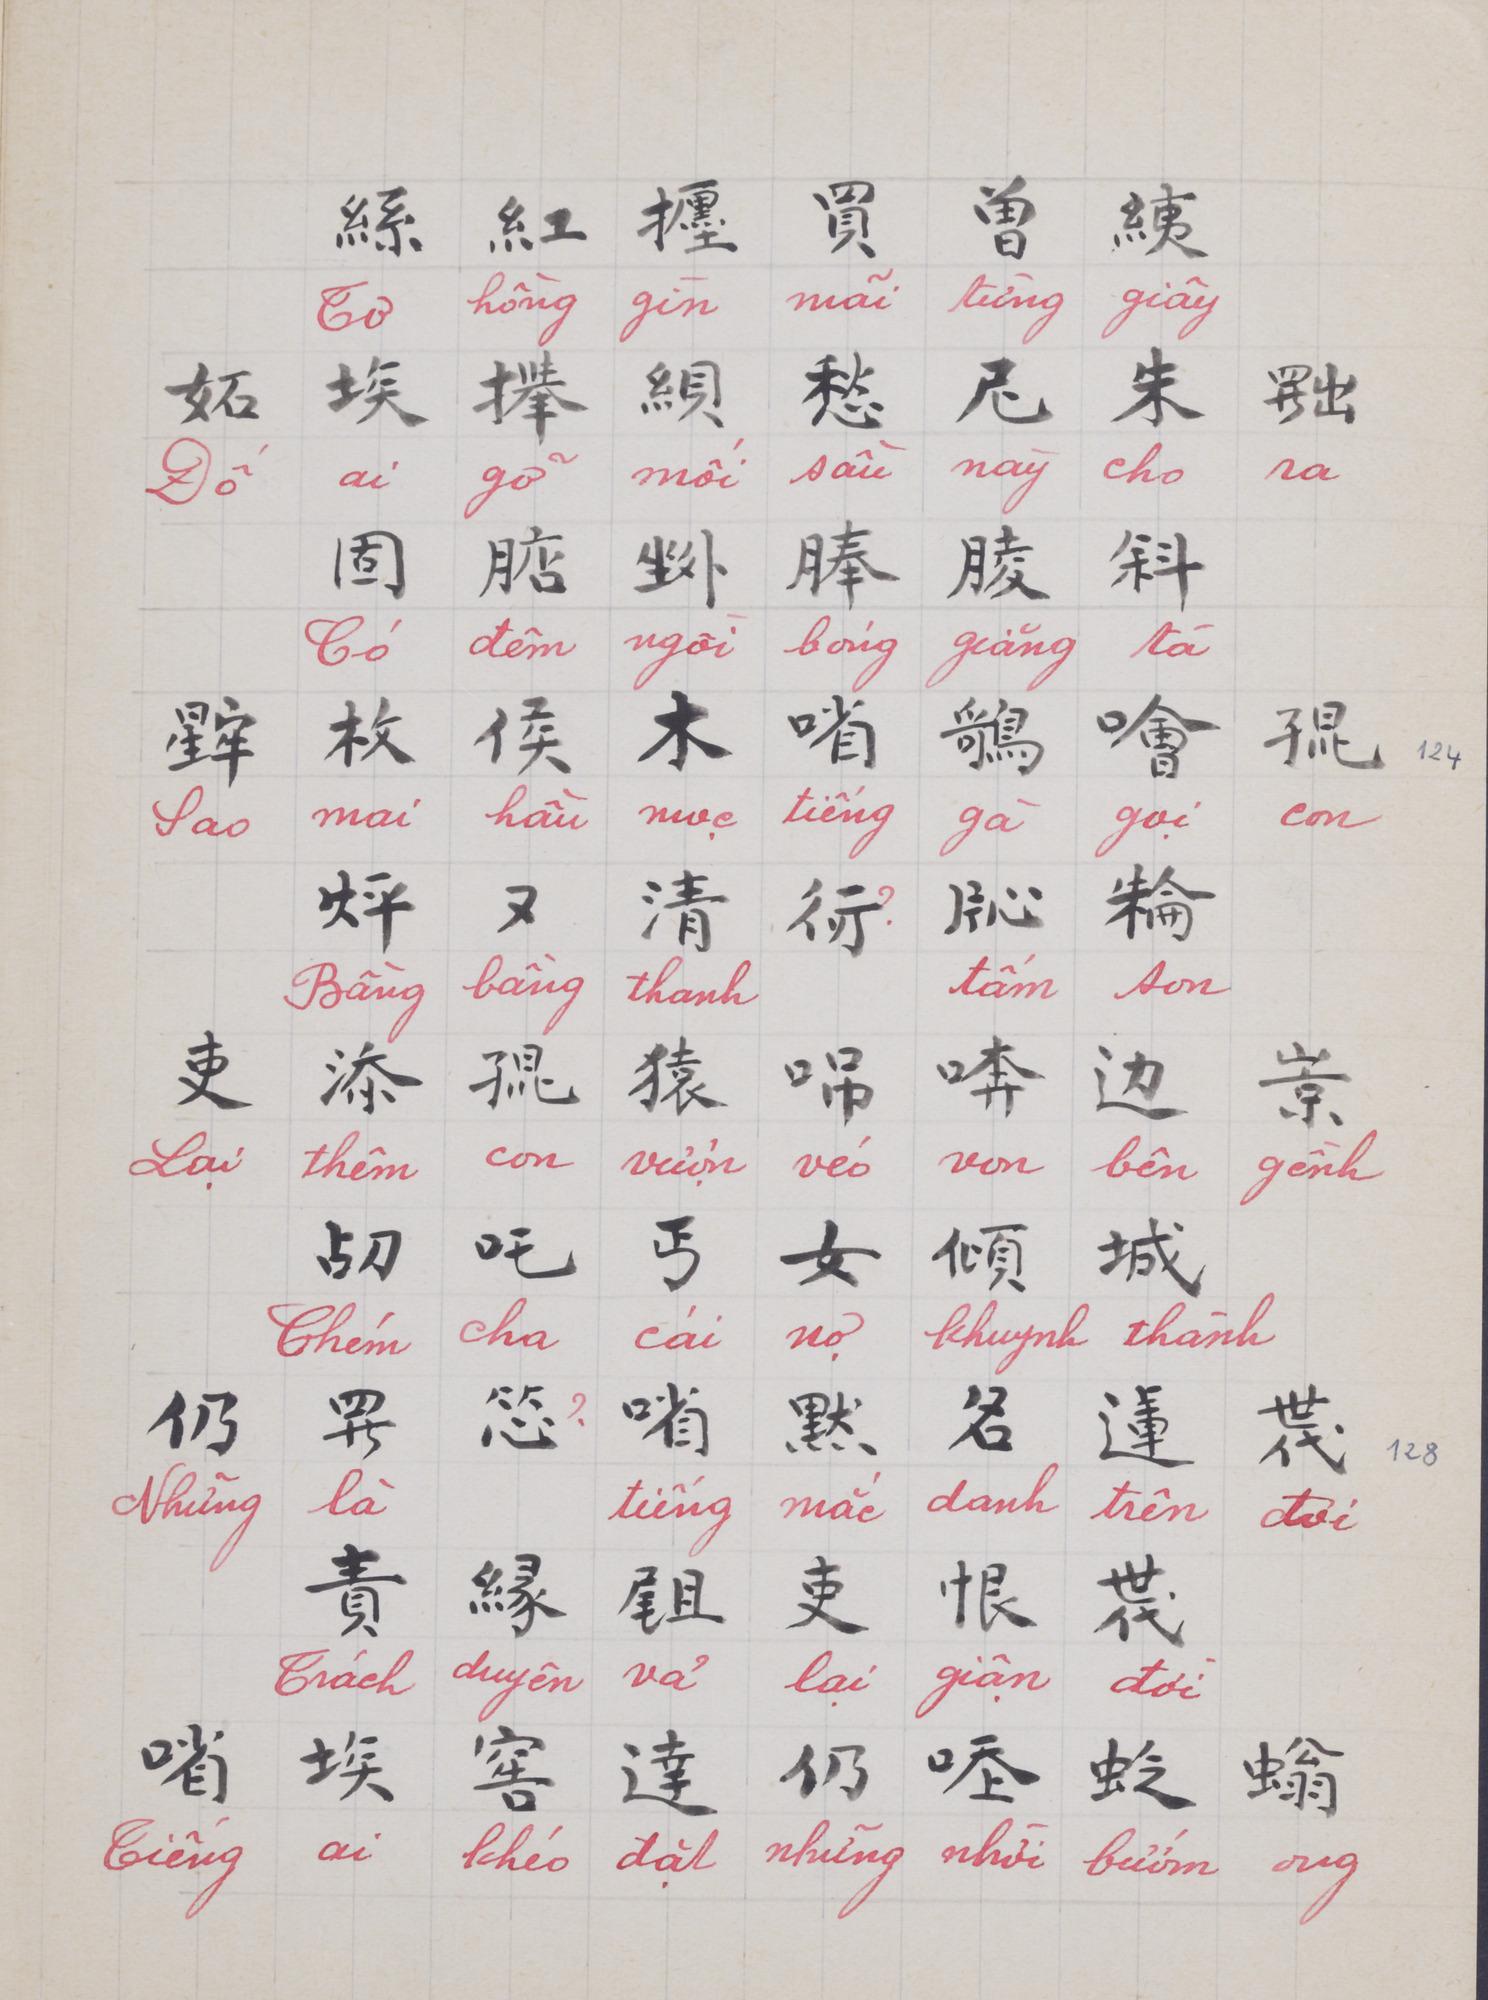 絲 紅 㨷 買 曾 𦀊
Tơ hồng gìn mãi từng giây
妬 埃 攑 䋦 愁 尼 朱 𦋦
Đố ai gỡ mối sầu này cho ra
固 𣎀 𡎥 䏾 𦝄 斜
Có đêm ngồi bóng giăng tà
𣋀 枚 候 木 㗂 𪃴 噲 𡥵 124
Sao mai hầu mọc tiếng gà gọi con
又 清 ?
Bâng bâng thanh tấm son
吏 添 𡥵 猿 㕸 𠹾 边 𡹡
Lại thêm con vượn véo von bên gềnh
𠛌 吒 丐 女 傾 城
Chém cha cái nợ khuynh thành
仍 𱺵 ? 㗂 默 名 𨕭 𠁀 128
Những là tiếng mắc danh trên đời
責 緣 𡲤 吏 恨 𠁀
Trách duyên vả lại giận đời
㗂 埃 窖 達 仍 𠳒 螉
Tiếng ai khéo đặt những nhời bướm ong